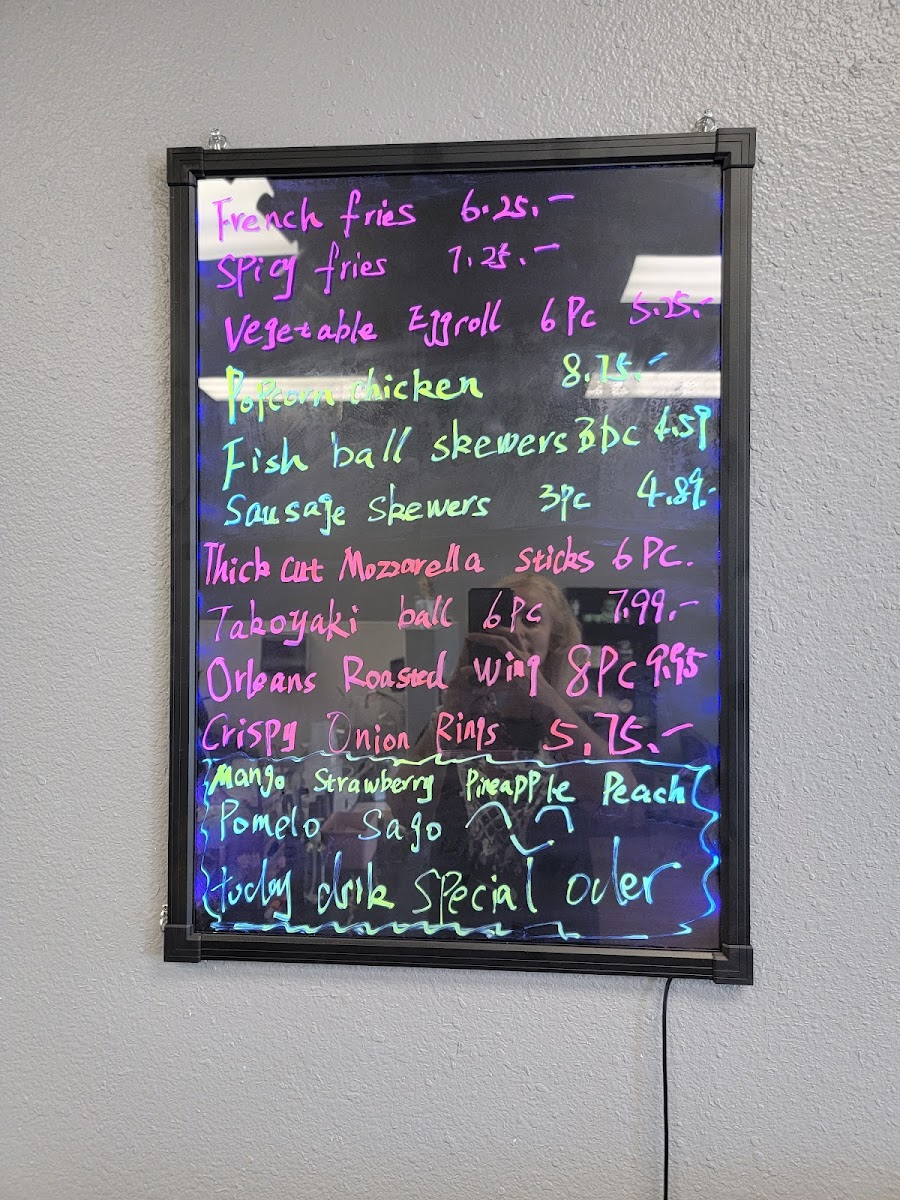 French fries 6.25.-
Spicy fries 7.25.-
Vegetable Eggroll 6Pc 5.25.-
Popcorn chicken 8.75.-
Fish ball skewers 3pc 4.59
Sausage skewers 3pc 4.89.-
Thick cut Mozzarella sticks 6 PC.
Takoyaki ball 6pc 7.99.-
Orleans Roasted wing 8Pc 9.95
Crispy Onion Rings 5.75.-
Mango Strawberry Pineapple Peach
Pomelo Sago
today drik special oder